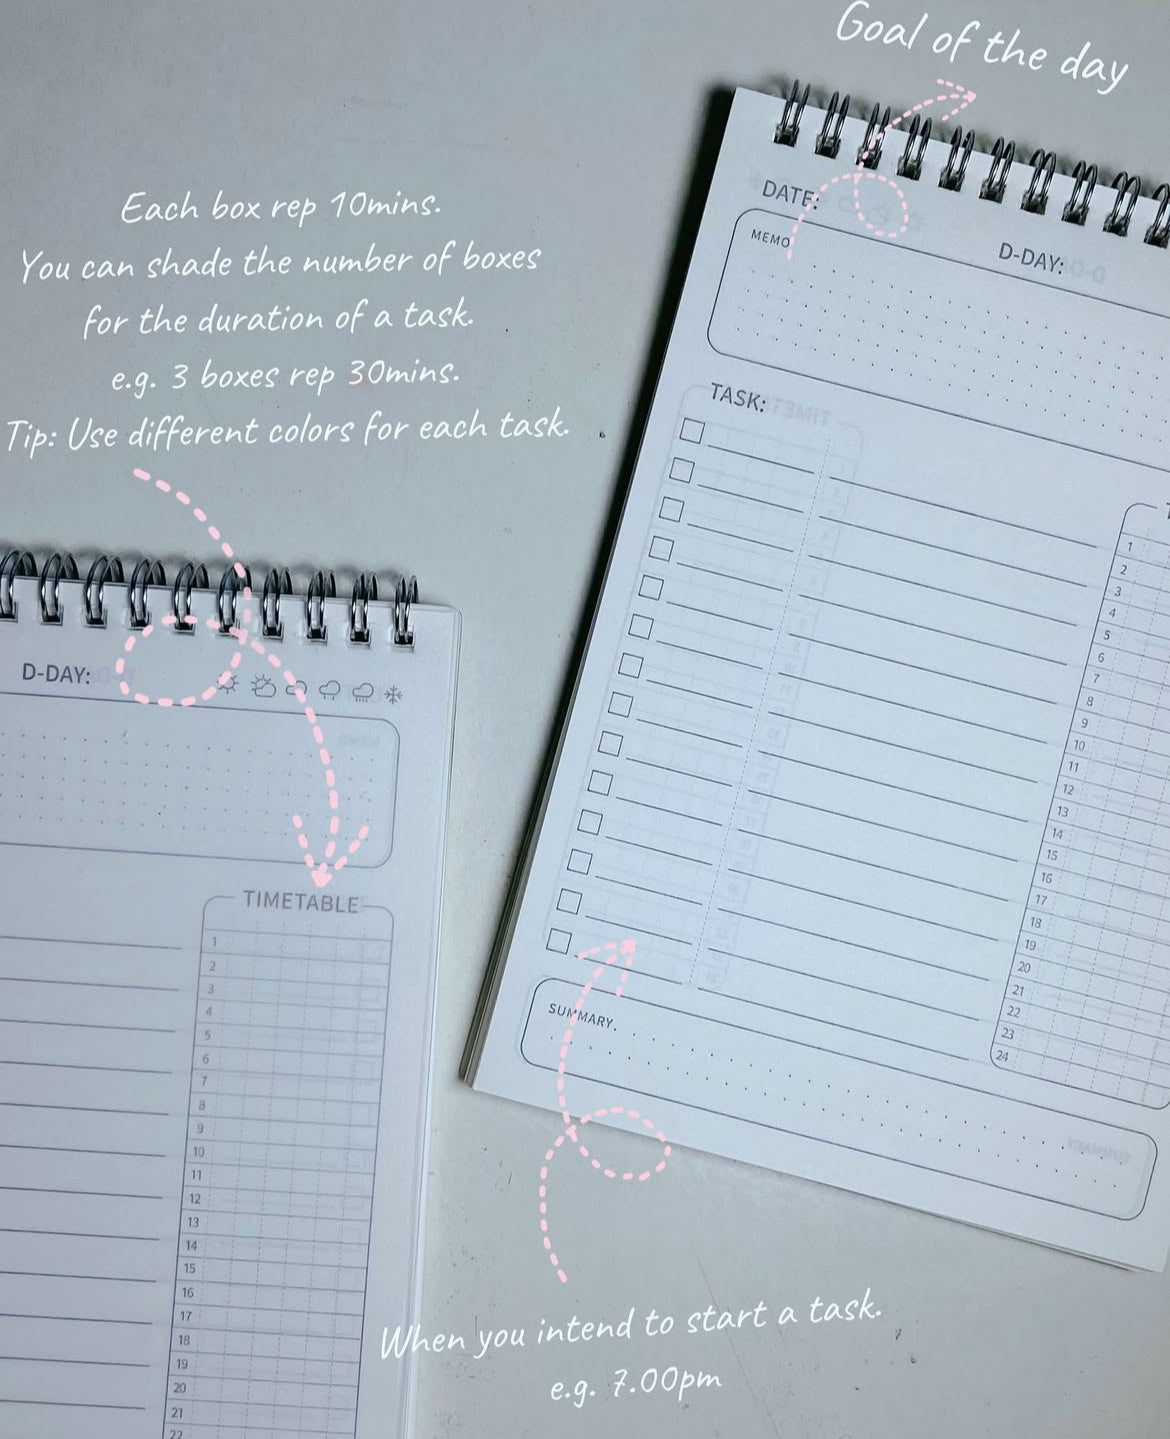 Goal of the day
Each box rep 10mins.
You can shade the number of boxes
for the duration of a task.
e.g. 3 boxes rep 30mins.
Tip: Use different colors for each task.
DATE:
D-DAY:
MEMO
TASK:
1
2
3
4
5
6
7
8
9
10
11
12
13
14
15
16
17
18
19
20
21
22
23
24
SUMMARY
D-DAY:
TIMETABLE
1
2
3
4
5
6
7
8
9
10
11
12
13
14
15
16
17
18
19
20
21
22
When you intend to start a task.
e.g. 7.00pm